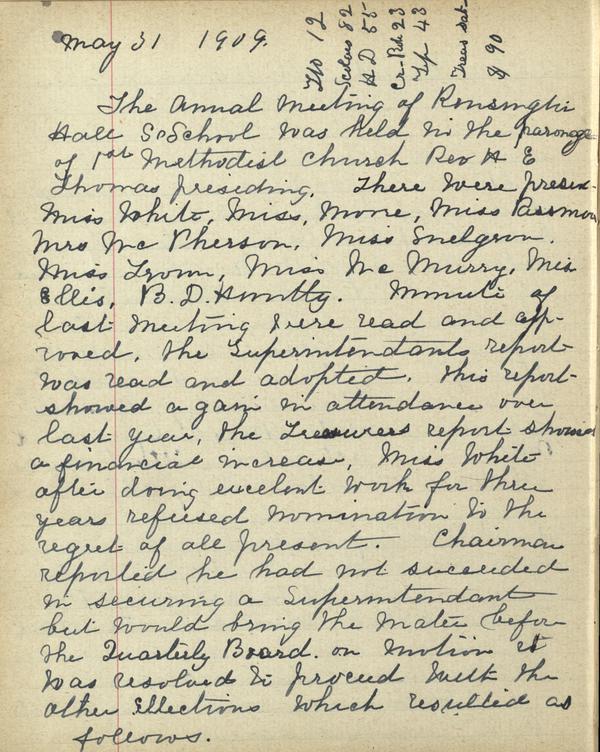 May 31 1909.
Tho 12
Scolars 82
H D 55
Cr. Rll 23
Tp 43
Treas sat-
$ 90
The Annual Meeting of Kensington
Hall S.School was held in the paronge
of 1st Methodist Church Rev H E
Thomas presiding. There were presen-
Miss White, Miss, Mone, Miss Passmor
Mrs McPherson, Miss Snelgrov.
Miss Trown, Miss McMurry, Miss
Ellis, B. D. Humtly. Minute of
last meeting were read and app-
roved, the Superintendants report
was read and adopted. this report
showed a gain in attendance over
last year, the Treasurers report showed
a financial increase, Miss White
after doing excelent work for three
years refused nomination to the
regret of all present. Chairman
reported he had not succeeded
in securing a Superintendant
but would bring the mater before
the Quarterly Board. on motion it
was resolved to proceed with the
other Ellections which resulted as
follows.